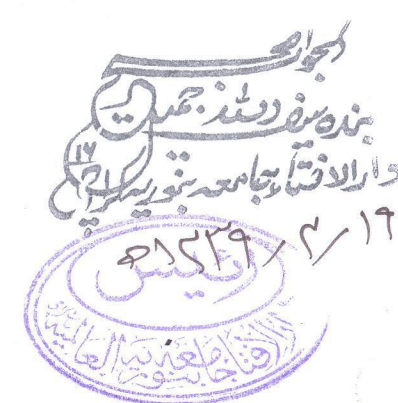 الجواب صحیح
بندہ سیف اللہ جمیل
دارالافتاء جامعہ بنوریہ کراچی ۱۶
۱۹/۴/۱۴۳۹ھ
رئیس
دارالافتاء جامعہ بنوریہ العالمیہ